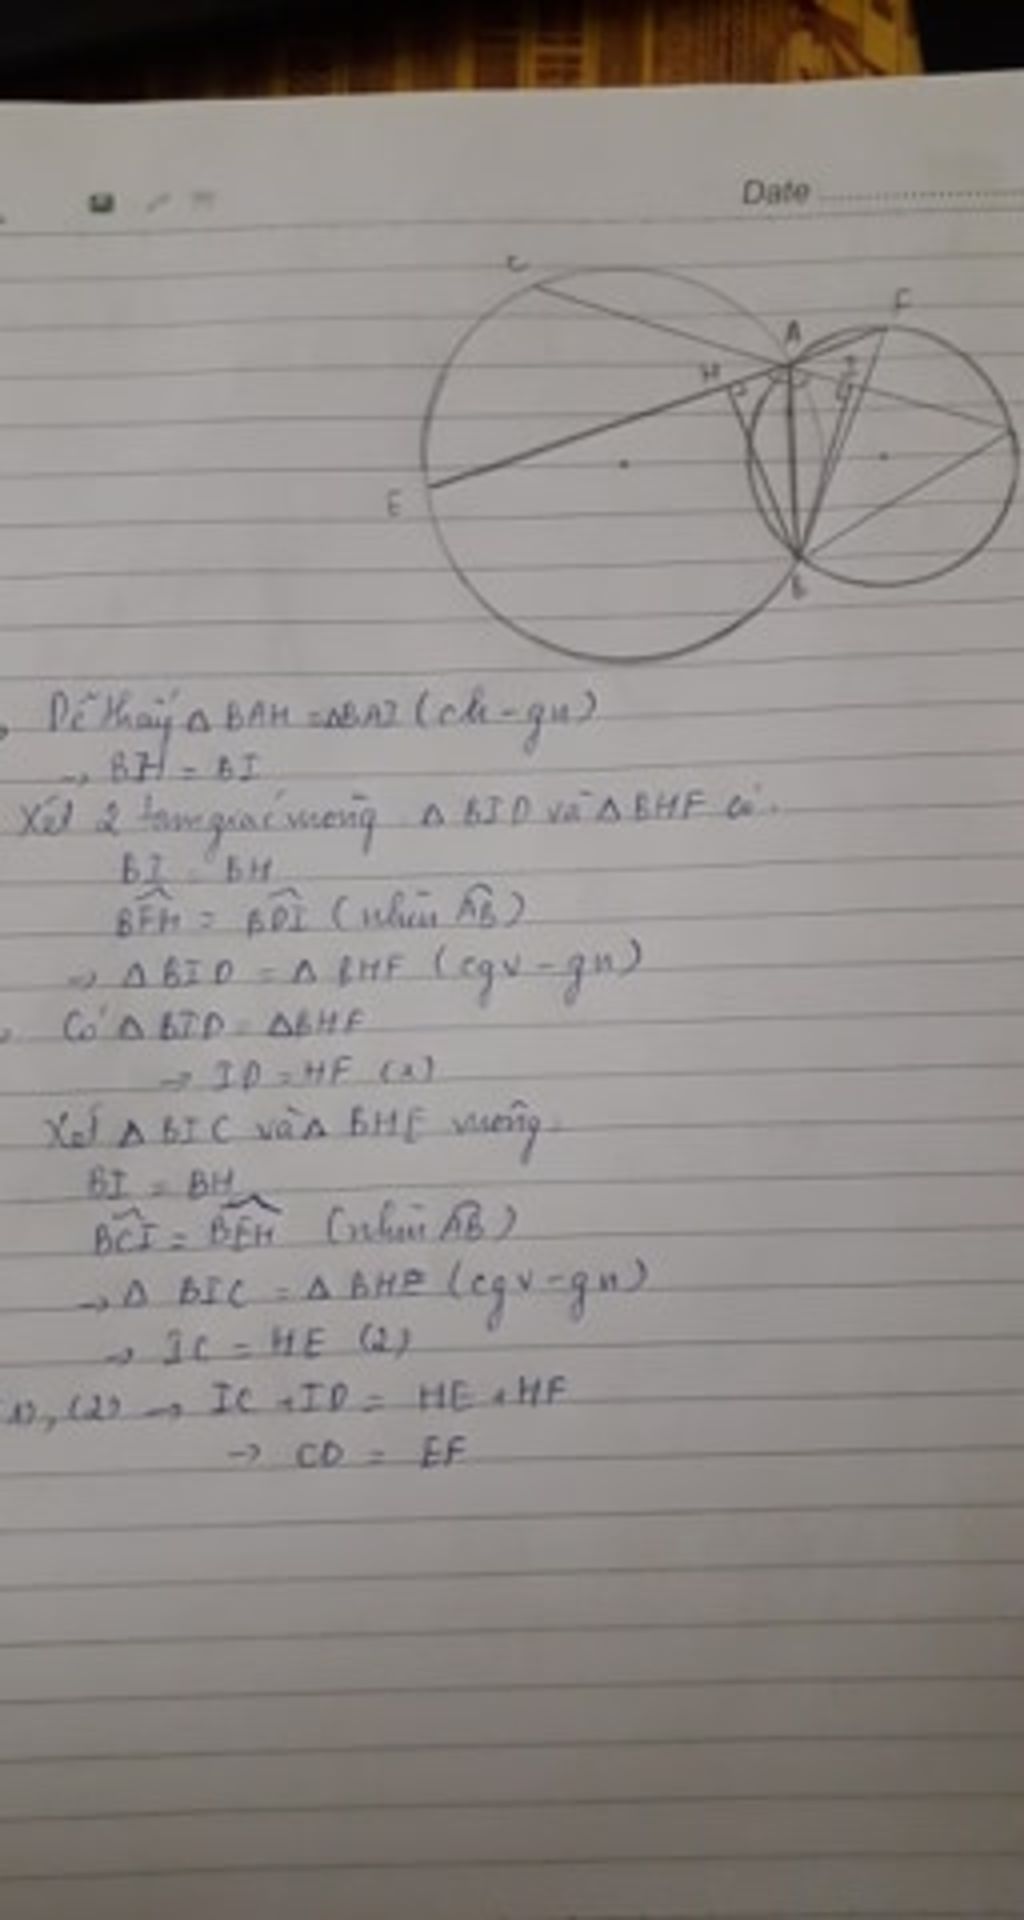 Date
C
F
A
H
I
E
B
Dễ thấy Δ BAH = ΔBAI (ch-gn)
→ BH = BI
Xét 2 tam giác vuông Δ BID và Δ BHF có.
BI = BH
BFH = BDI (nhìn AB)
→ Δ BID = Δ BHF (cgv-gn)
Có Δ BID = ΔBHF
→ ID = HF (1)
Xét Δ BIC và Δ BHE vuông
BI = BH
BCI = BEH (nhìn AB)
→ Δ BIC = Δ BHE (cgv-gn)
→ IC = HE (2)
(1), (2) → IC + ID = HE + HF
→ CD = EF